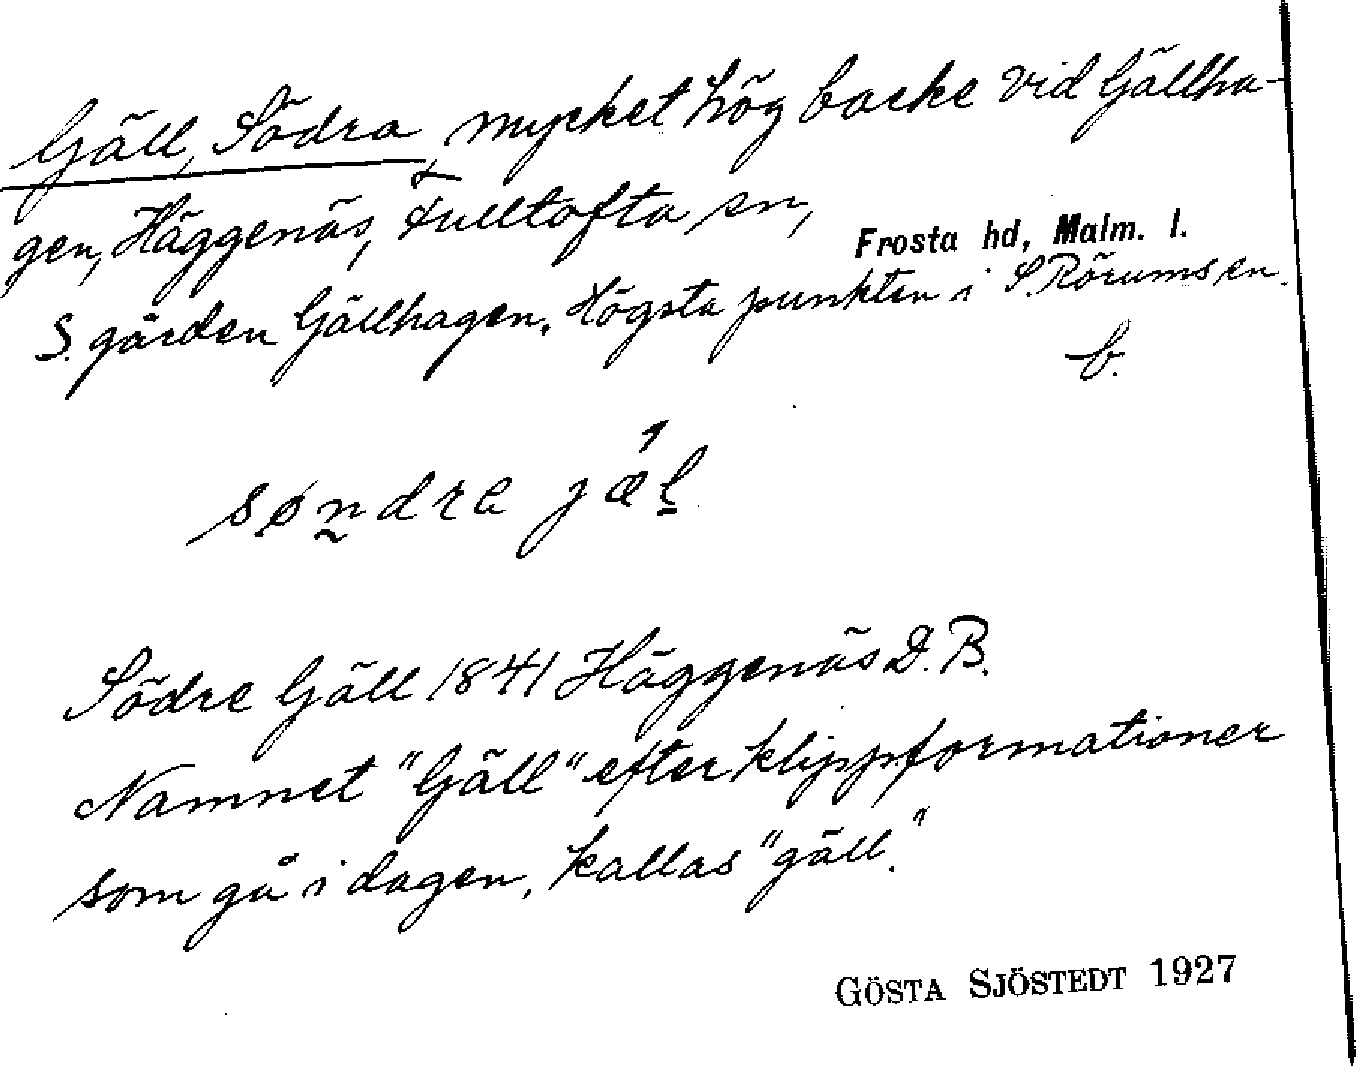 Gäll, Södra, mycket hög backe vid Gällha-
gen, Häggenäs, Fulltofta sn, Frosta hd, Malm. l.
S. gården Gällhagen. Högsta punkten i S. Rörums sn.
b.
søndra jæl
Södre Gäll 1841 Häggenäs D.B.
Namnet "Gäll" efter klippformationer
som gå i dagen, kallas "gäll."
GÖSTA SJÖSTEDT 1927